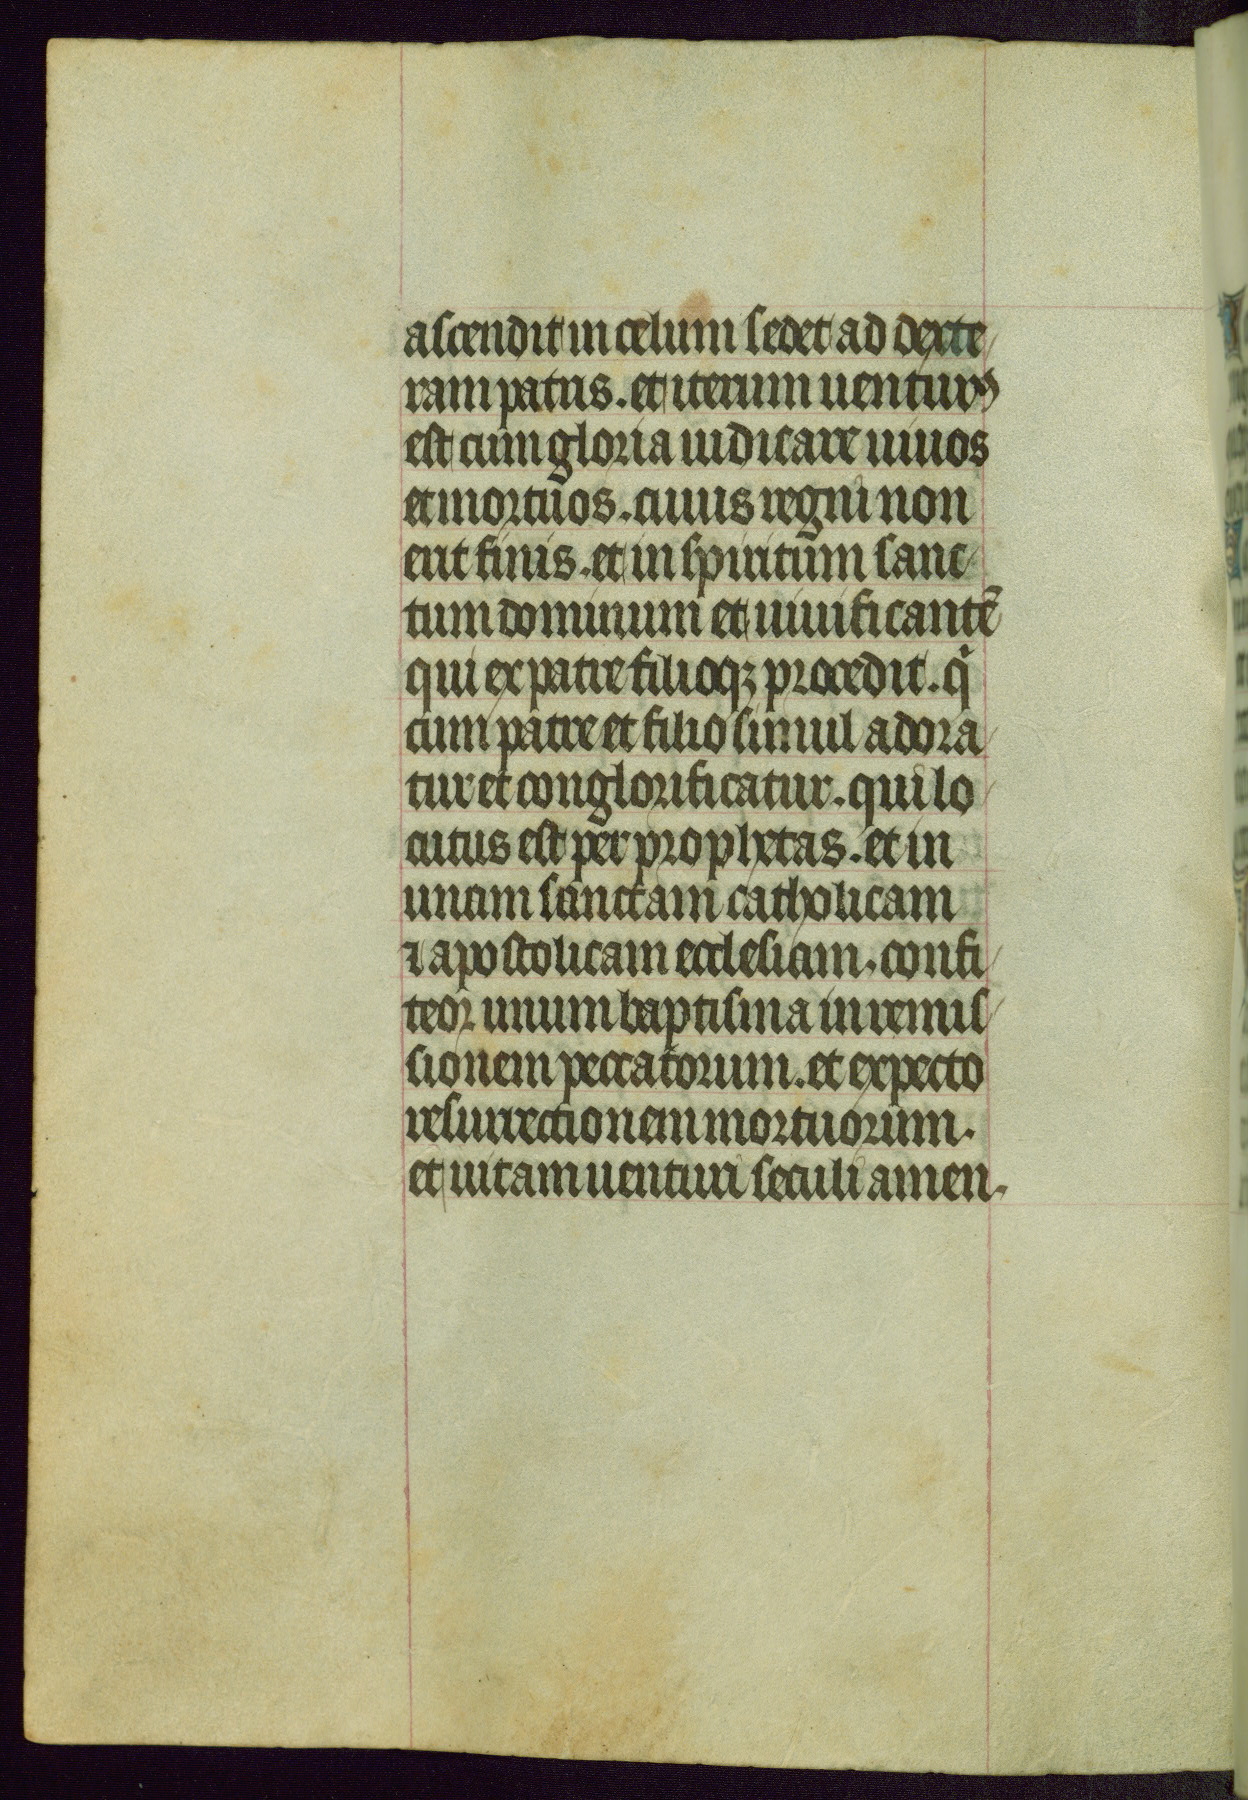 ascendit in celum sedet ad dexte
ram patris. et iterum uenturꝰ
est cum gloria iudicare uiuos
et mortuos. cuius regni non
erit finis. et in spiritum sanc
tum dominum et uiuificantē
qui ex patre filioqꝫ procedit. qͥ
cum patre et filio simul adora
tur et conglorificatur. qui lo
cutus est per prophetas. et in
unam sanctam catholicam
⁊ apostolicam ecclesiam. confi
teor unum baptisma in remis
sionem peccatorum. et expecto
resurrectionem mortuorum.
et uitam uenturi seculi amen.